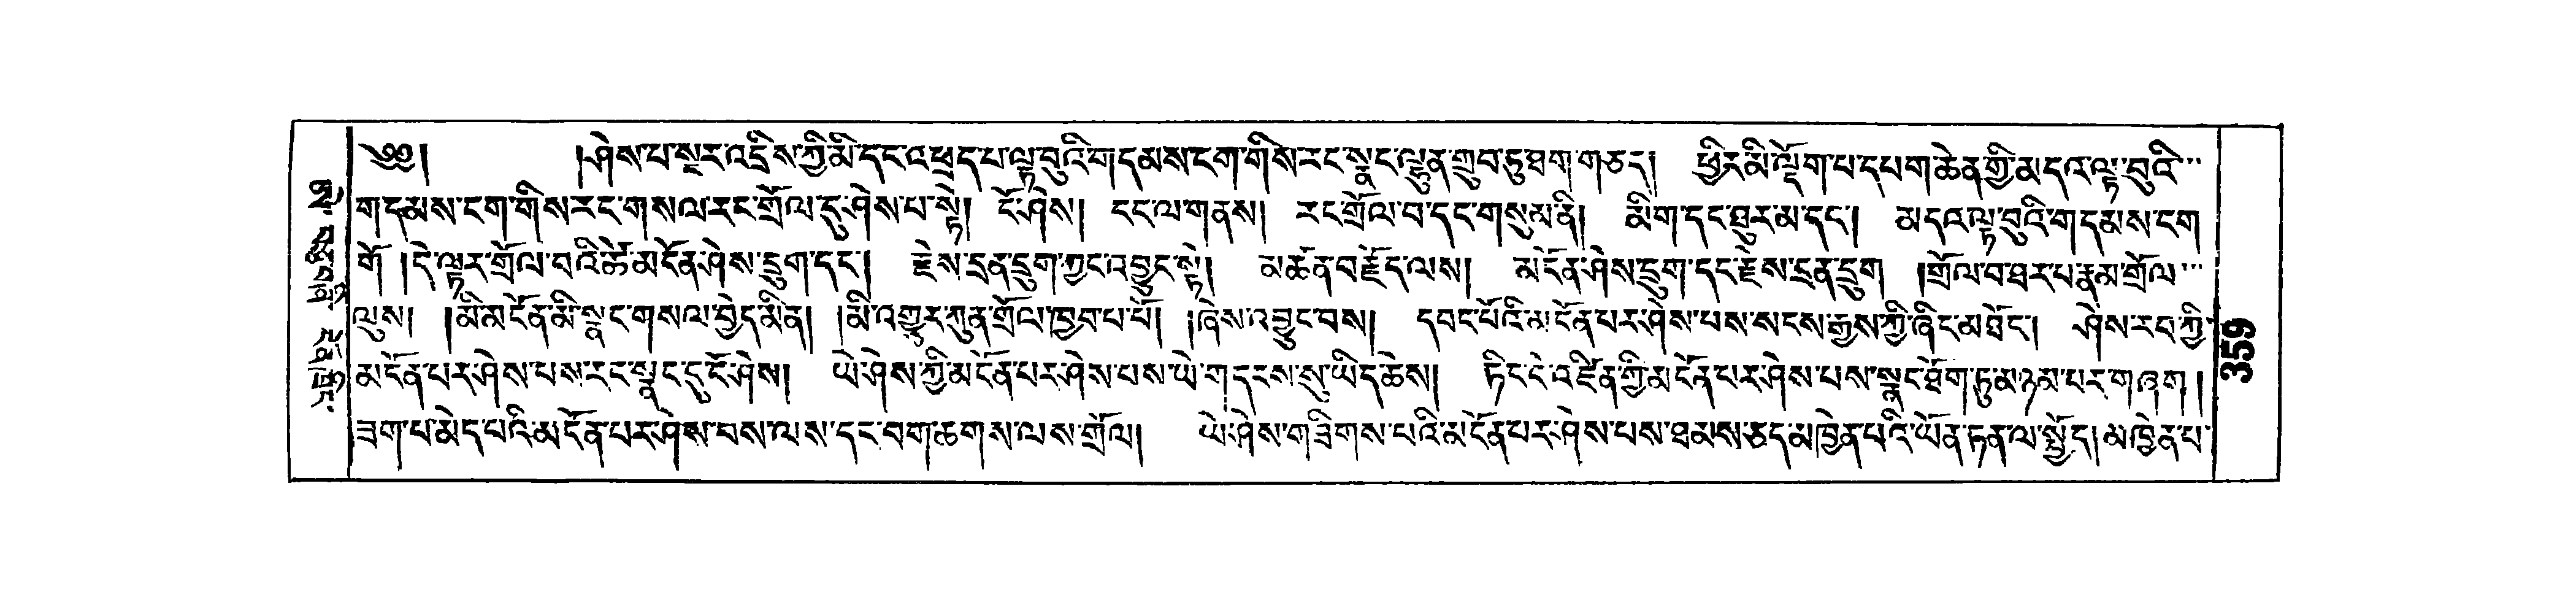 ༄༅། །ཤེས་པ་སྔར་འདྲིས་ཀྱི་མི་དང་འཕྲད་པ་ལྟ་བུའི་གདམས་ངག་གིས་རང་སྣང་ལྷུན་གྲུབ་ཏུ་ཐག་གཅད། ཕྱིར་མི་ལྡོག་པ་དཔག་ཆེན་གྱི་མདའ་ལྟ་བུའི་
གདམས་ངག་གིས་རང་གསལ་རང་གྲོལ་དུ་ཤེས་པ་སྟེ། ངོ་ཤེས། ངང་ལ་གནས། རང་གྲོལ་བ་དང་གསུམ་ནི། མིག་དང་ཐུར་མ་དང་། མདའ་ལྟ་བུའི་གདམས་ངག
གོ །དེ་ལྟར་གྲོལ་བའི་ཚེ་མངོན་ཤེས་དྲུག་དང་། རྗེས་དྲན་དྲུག་ཀྱང་འབྱུང་སྟེ། མཆོན་བརྗོད་ལས། མངོན་ཤེས་དྲུག་དང་རྗེས་དྲན་དྲུག །གྲོལ་བ་ཐར་པ་རྣམ་གྲོལ་
ལུས། །མི་མངོན་མི་སྣང་གསལ་བྱེད་མིན། །མི་འགྱུར་ཀུན་གྲོལ་ཁྱབ་པ་པོ། །ཞེས་འབྱུང་བས། དབང་པོའི་མངོན་པར་ཤེས་པས་སངས་རྒྱས་ཀྱི་ཞིང་མཐོང་། ཤེས་རབ་ཀྱི་
མངོན་པར་ཤེས་པས་རང་སྣང་དུ་ངོ་ཤེས། ཡེ་ཤེས་ཀྱི་མངོན་པར་ཤེས་པས་ཡེ་གདངས་སུ་ཡིད་ཆེས། ཏིང་ངེ་འཛིན་གྱི་མངོན་པར་ཤེས་པས་སྣང་ཐོག་ཏུ་མཉམ་པར་གཞག །
ཟག་པ་མེད་པའི་མངོན་པར་ཤེས་པས་ལས་དང་བག་ཆགས་ལས་གྲོལ། ཡེ་ཤེས་གཟིགས་པའི་མངོན་པར་ཤེས་པས་ཐམས་ཅད་མཁྱེན་པའི་ཡོན་ཏན་ལ་སྤྱོད། མཁྱེན་པ་